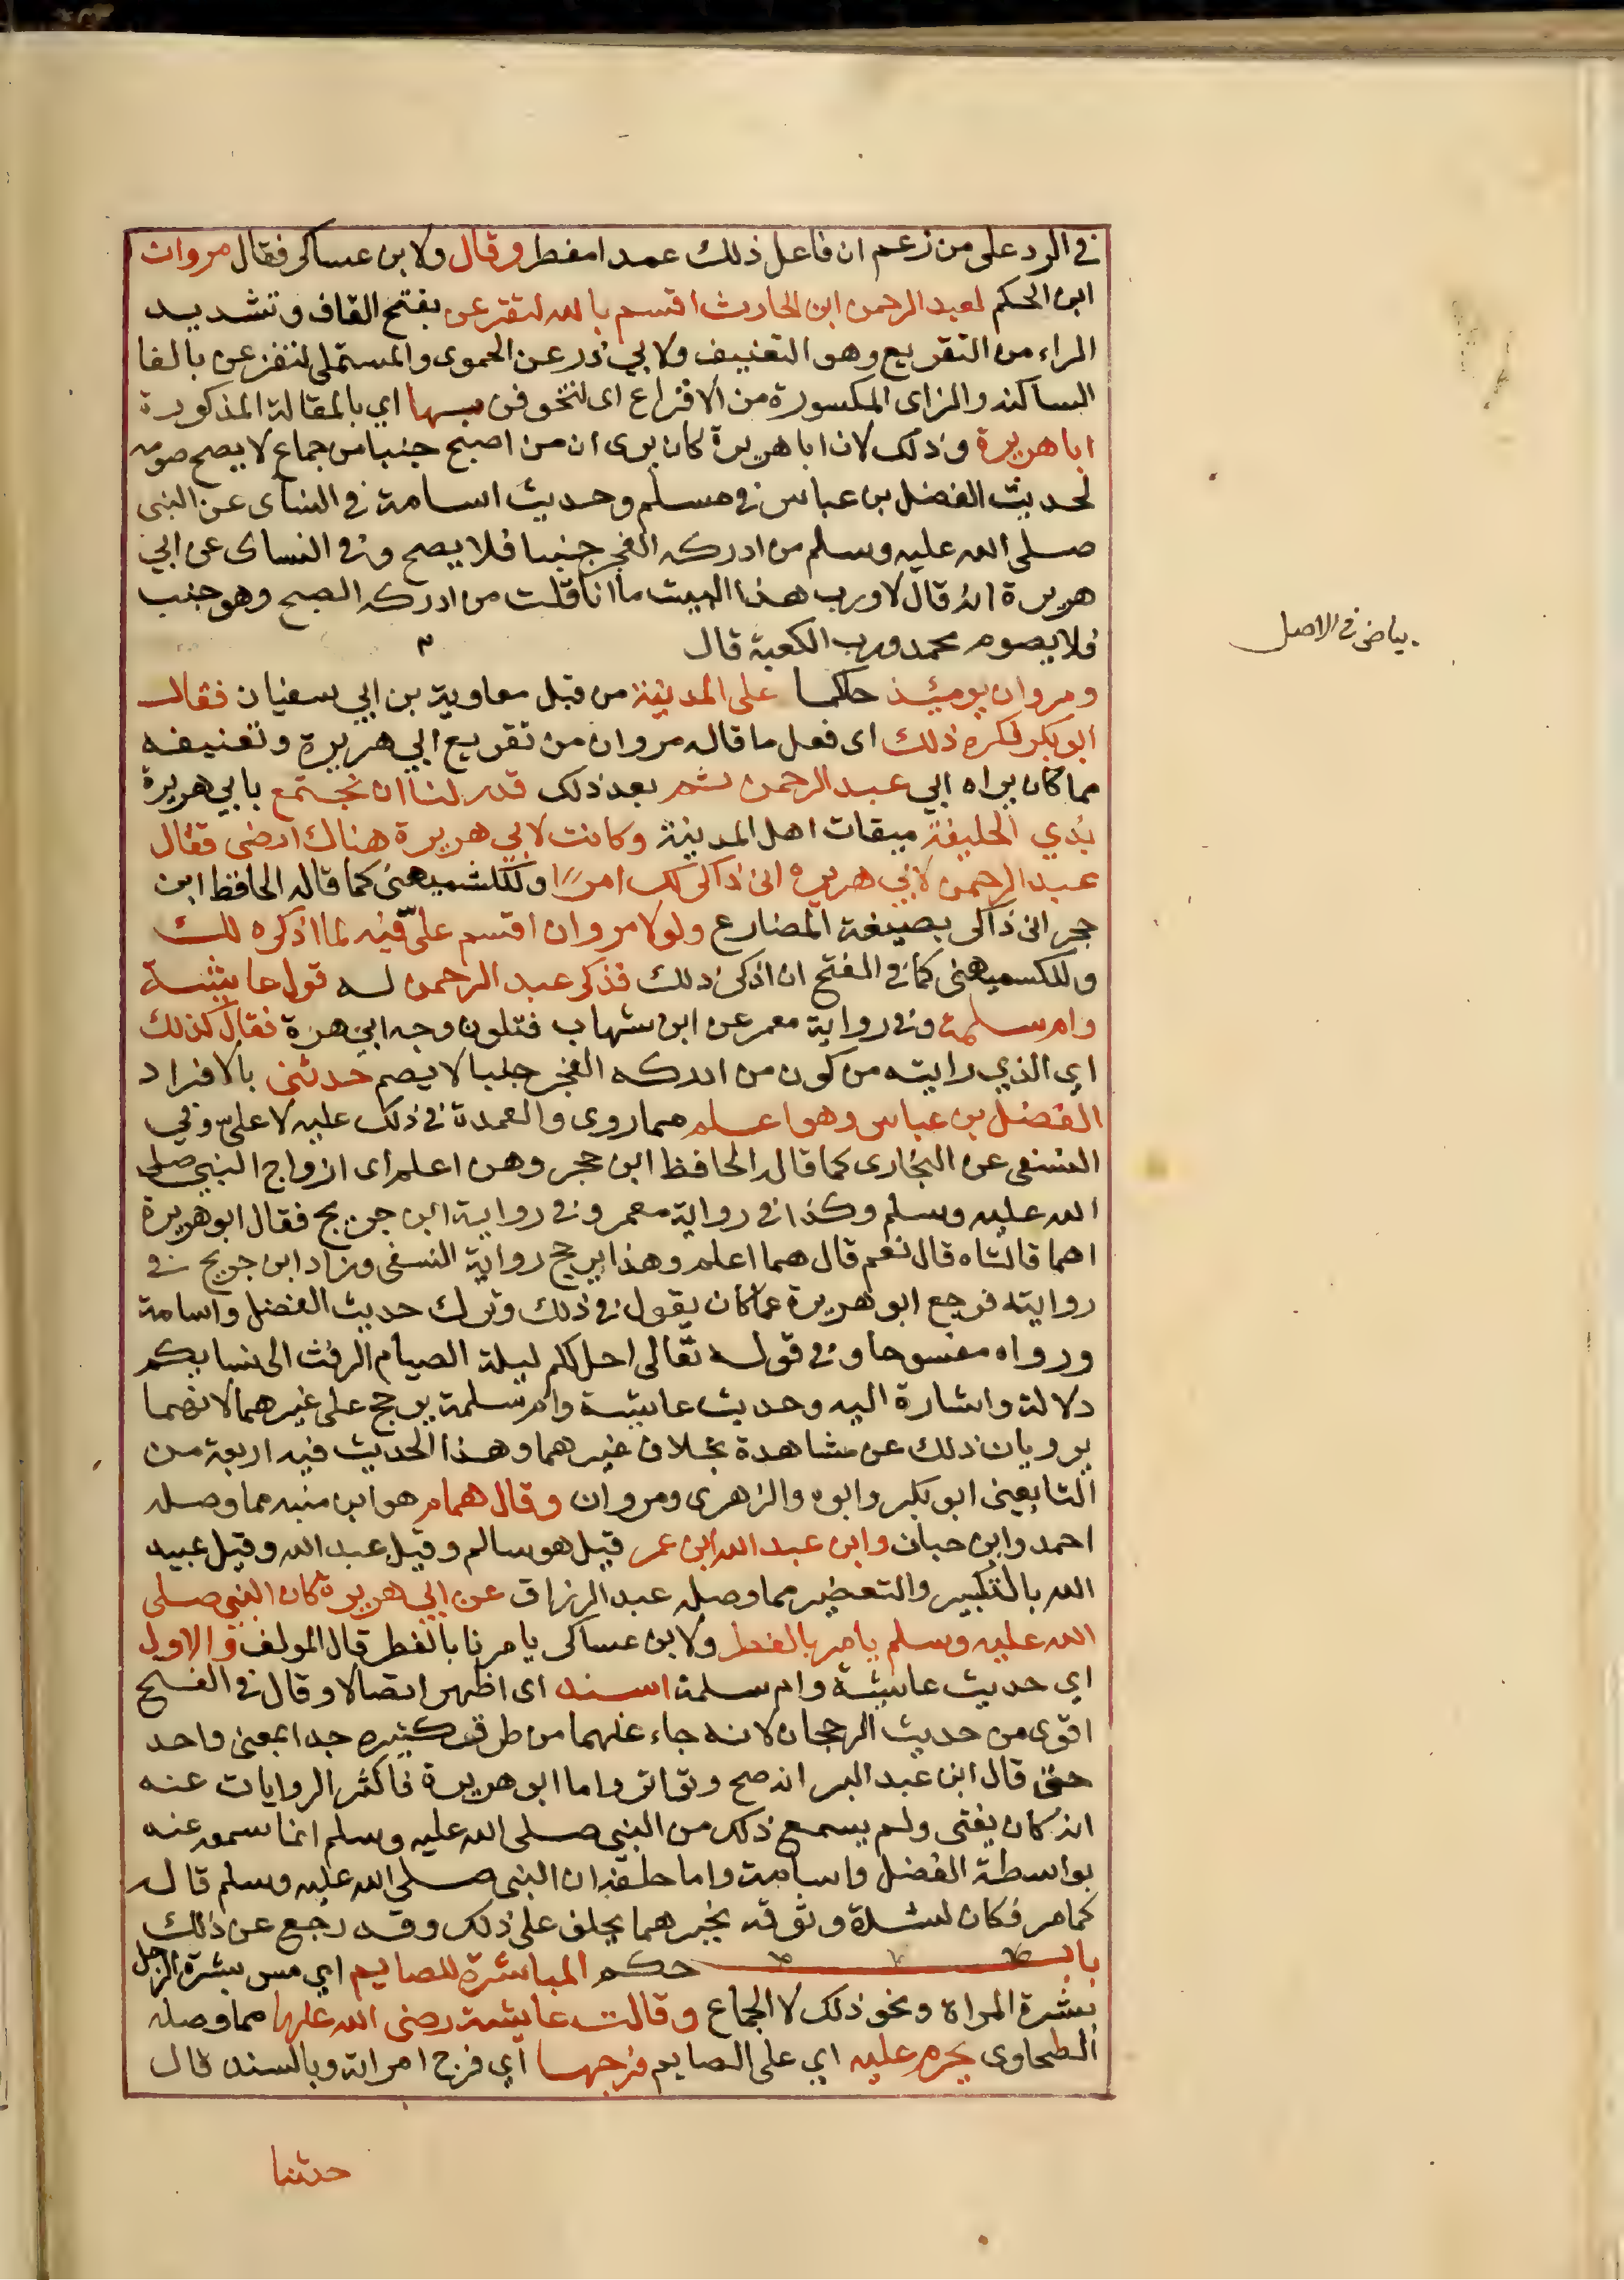 في الرد على من زعم ان فاعل ذلك عمدا مفطر وقال ولابن عساكر فقال مروان
ابن الحكم لعبد الرحمن ابن الحارث اقسم بالله لتقرعن بفتح القاف وتشديد
الراء من التقريع وهو التعنيف ولابي ذر عن الحموى والمستملى لتفزعن بالفا
الساكنه والزاى المكسورة من الافزاع اى لتخوفن بها اي بالمقالة المذكورة
ابا هريرة وذلك لان ابا هريرة كان يرى ان من اصبح جنبا من جماع لا يصح صومه
لحديث الفضل بن عباس في مسلم وحديث اسامة في النساى عن النبى
صلى الله عليه وسلم من ادركه الفجر جنبا فلا يصم وفي النساى عن ابي
هريرة انه قال لا ورب هذا البيت ما انا قلت من ادركه الصبح وهو جنب
فلا يصوم محمد ورب الكعبة قال
بياض في الاصل
ومروان يومئذ حاكما على المدينة من قبل معاوية بن ابي سفيان فقال
ابو بكر فكره ذلك اى فعل ما قاله مروان من تقريع ابي هريرة وتعنيفه
مما كان يراه ابي عبد الرحمن ثم بعد ذلك قدر لنا ان نجتمع بابي هريرة
بذي الحليفة ميقات اهل المدينة وكانت لابي هريرة هناك ارض فقال
عبد الرحمن لابي هريره انى ذاكر لك امرا وللكشميهنى كما قاله الحافظ ابن
حجر انى ذاكر بصيغة المضارع ولولا مروان اقسم علىّ فيه لما اذكره لك
وللكسميهنى كما في الفتح ان اذكر ذلك فذكر عبد الرحمن له قول عايشة
وام سلمة وفي رواية معمر عن ابن شهاب فتلون وجه ابي هرة فقال كذلك
اي الذي رايته من كون من ادركه الفجر جنبا لا يصم حدثنى بالافراد
الفضل بن عباس وهو اعلم مما روى والعمدة في ذلك عليه لا علىّ وفي
النسفى عن البخارى كما قاله الحافظ ابن حجر وهن اعلم اى ازواج النبي صلى
الله عليه وسلم وكذا في رواية معمر وفي رواية ابن جريج فقال ابو هريرة
اهما قالتاه قال نعم قال هما اعلم وهذا يرجح رواية النسفى وزاد ابن جريج في
روايته فرجع ابو هريرة عما كان يقول في ذلك وترك حديث الفضل واسامة
ورواه منسوخا وفي قوله تعالى احل لكم ليلة الصيام الرفث الى نسايكم
دلالة واشارة اليه وحديث عايشة وام سلمة يرجح على غيرهما لانهما
يرويان ذلك عن مشاهدة بخلاف غيرهما وهذا الحديث فيه اربعة من
التابعين ابو بكر وابوه والزهرى ومروان وقال همام هو ابن منبه مما وصله
احمد وابن حبان وابن عبد الله ابن عمر قيل هو سالم وقيل عبد الله وقيل عبيد
الله بالتكبير والتصغير مما وصله عبد الرزاق عن ابي هريرة كان النبي صلى
الله عليه وسلم يامر بالفطر ولابن عساكر يامرنا بالفطر قال المولف والاول
اي حديث عايشة وام سلمة اسند اى اظهر اتصالا وقال في الفتح
اقوى من حديث الرجحان لانه جاء عنهما من طرق كثيره جدا بمعنى واحد
حتى قال ابن عبد البر انه صح وتواتر واما ابو هريرة فاكثر الروايات عنه
انه كان يفتى ولم يسمع ذلك من النبى صلى الله عليه وسلم انما سمعه عنه
بواسطة الفضل واسامة واما حلفه ان النبى صلى الله عليه وسلم قال
كما مر فكان لشدة وثوقه بخبرهما يحلف على ذلك وقد رجع عن ذلك
باب حكم المباشرة للصايم اي مس بشرة الرجل
بشرة المراة ونحو ذلك لا الجماع وقالت عايشة رضى الله عنها مما وصله
الطحاوى يحرم عليه اي على الصايم فرجها اي فرج امراته وبالسند قال
حدثنا